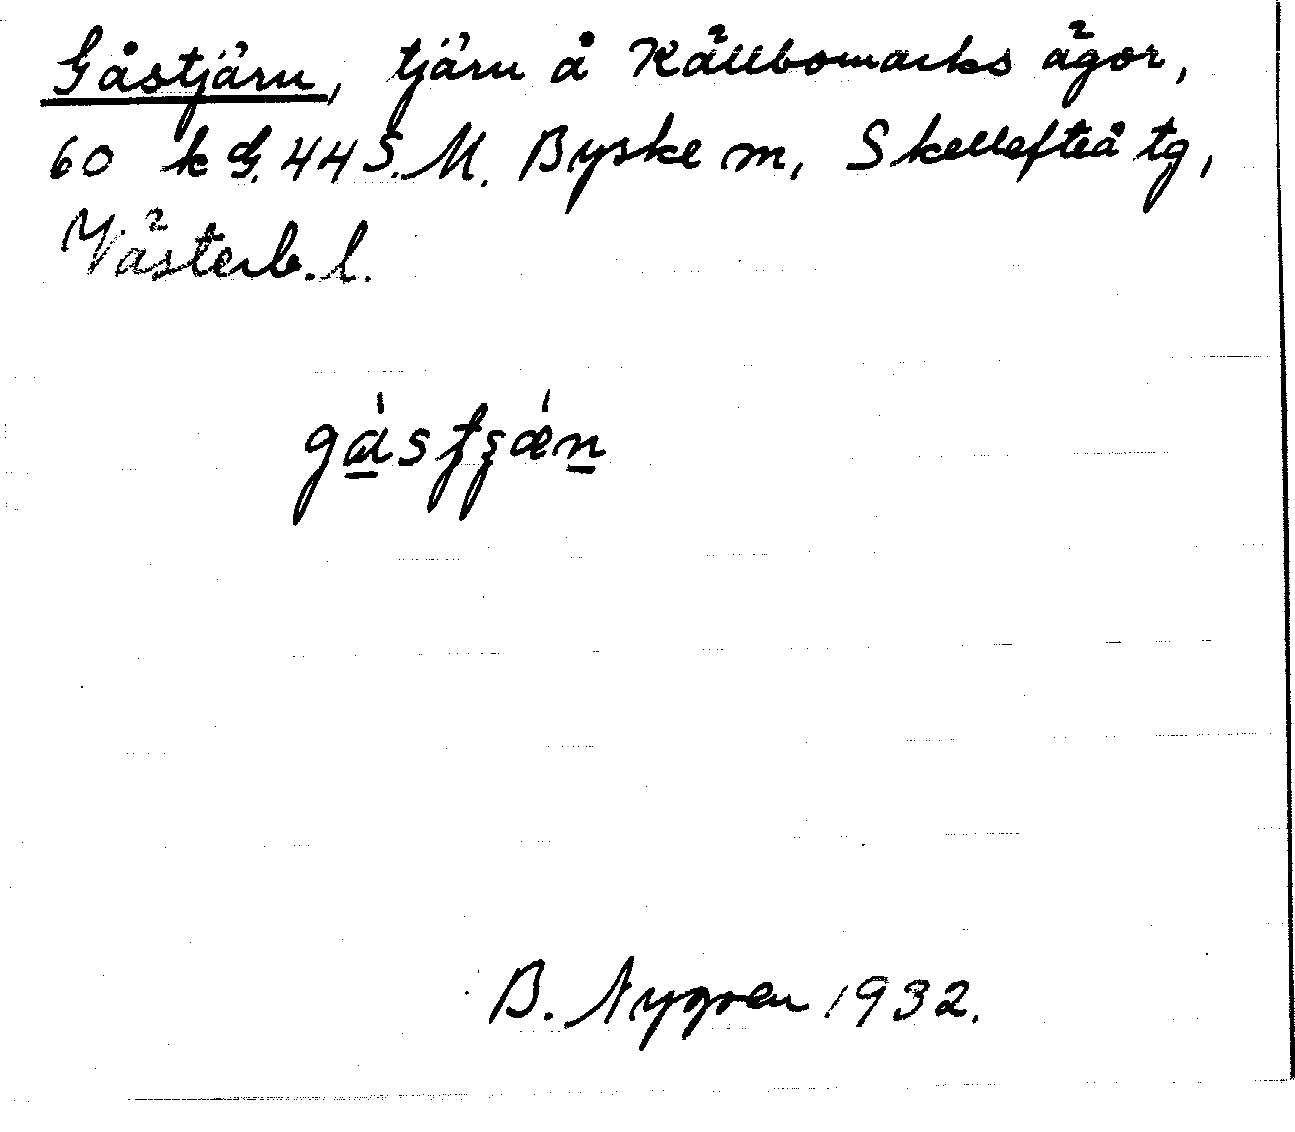 Gåstjärn, tjärn å Källbomarks ägor,
60 k G. 44 S.M. Byske m, Skellefteå tg,
Västerb. l.
B. Nygren 1932.